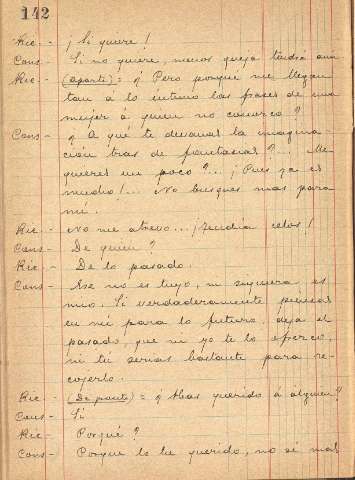 142
Ric. - ¡Si quiere!
Cons - Si no quiere, menos queja tendrá aún
Ric. - (aparte) = ¿Pero porque me llegan
tan á lo íntimo las frases de una
mujer á quien no conozco?
Cons - ¿A qué te devanas la imagina
ción tras de fantasias?... ¿Me
quieres un poco?... ¡Pues ya es
mucho!... No busques mas para
mí.
Ric. - No me atrevo... ¡tendria celos!
Cons - De quien?
Ric. - De lo pasado.
Cons - Ese no es tuyo, ni siquiera es
mio. Si verdaderamente piensas
en mí para lo futuro, deja el
pasado, que ni yo te lo ofrezco,
ni tu serias bastante para re-
cojerlo.
Ric - (De pronto) = ¿Has querido á alguien?
Cons - Si
Ric - Porqué?
Cons - Porque lo he querido, no sé mas